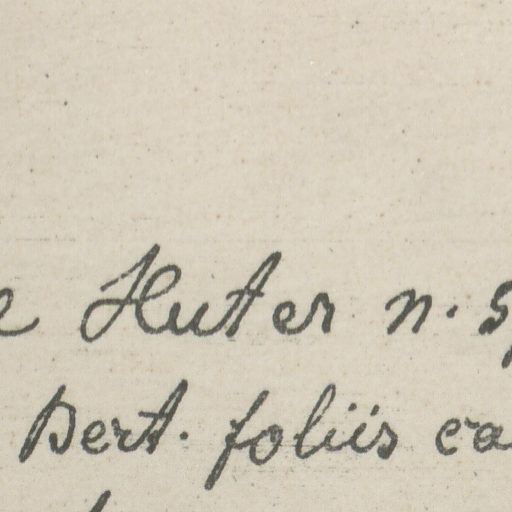 e Huter n. sp
Bert. foliis ca